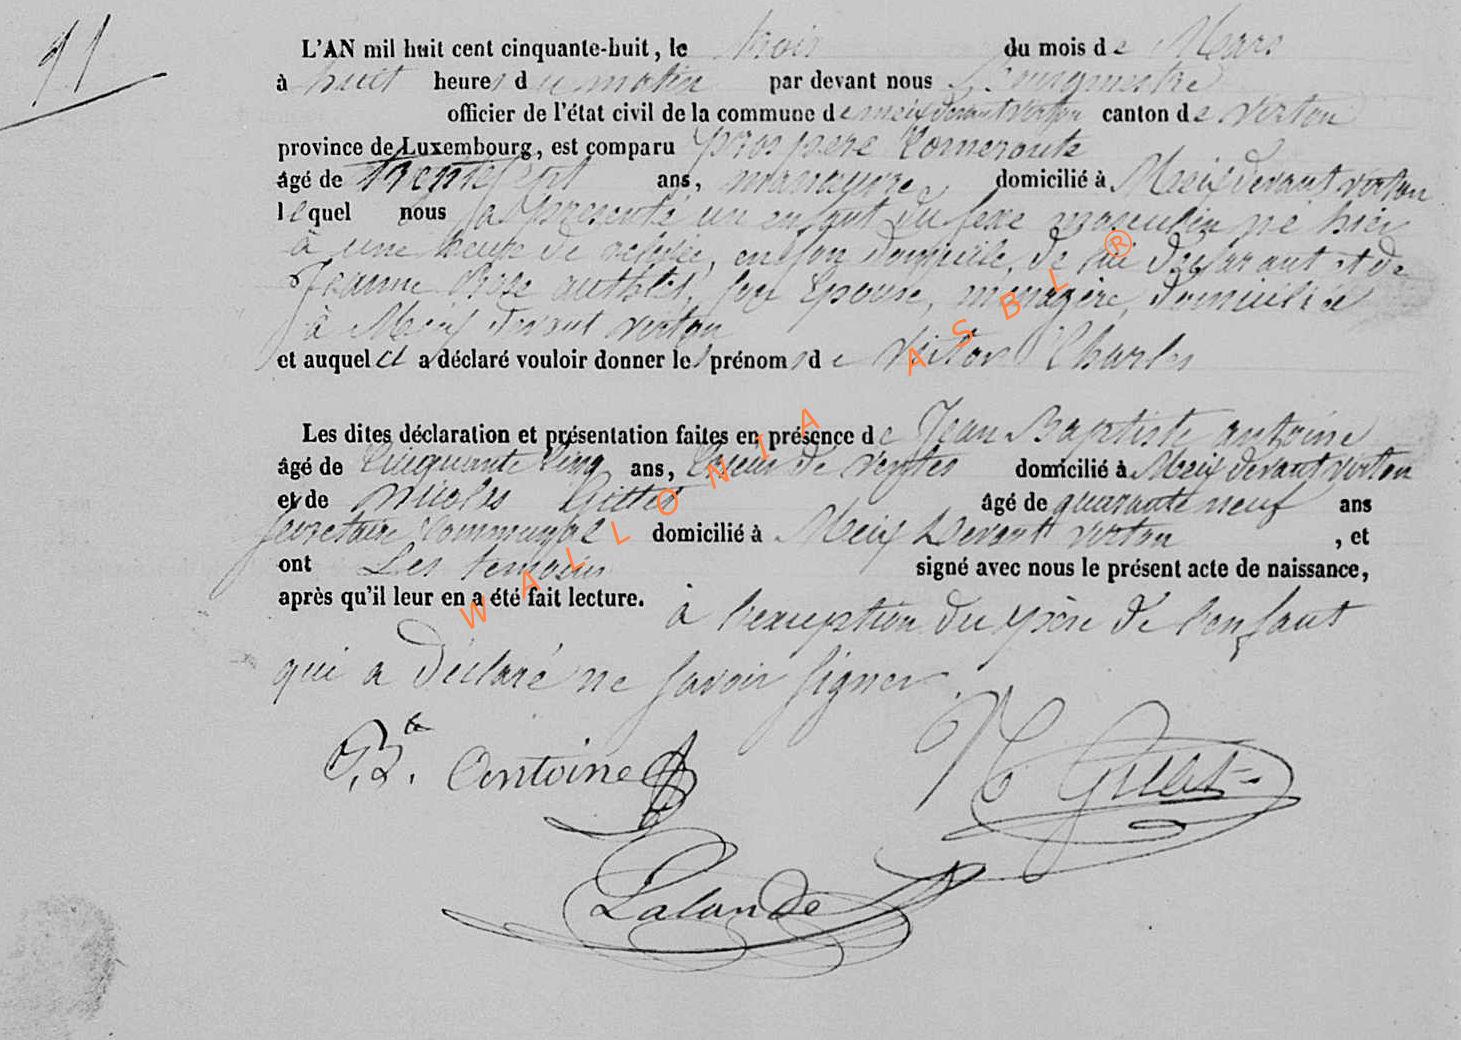 11
L'AN mil huit cent cinquante-huit, le trois du mois de Mars
à huit heures du matin par devant nous Bourgmestre
officier de l'état civil de la commune de meix devant virton canton de virton
province de Luxembourg, est comparu prospere
âgé de trente sept ans, manoeuvre, domicilié à Meix devant virton
lequel nous a présenté un enfant du sexe masculin né hier
à une heure de relevée, en son domicile, de lui déclarant et de
Jeanne Rose son épouse, menagère, domiciliée
à Meix devant virton
et auquel il a déclaré vouloir donner les prénoms de Victor Charles
Les dites déclaration et présentation faites en présence de Jean Baptiste antoine
âgé de Cinquante Cinq ans, de ventes domicilié à Meix devant virton
et de nicolas Gillet âgé de quarante neuf ans
secretaire Communal domicilié à Meix Devant virton , et
ont Les temoins signé avec nous le présent acte de naissance,
après qu'il leur en a été fait lecture. à l'exception du père de l'enfant
qui a déclaré ne savoir signer.
J. B.te Antoine N Gillet
Lalande
WALLONIA ASBL ®